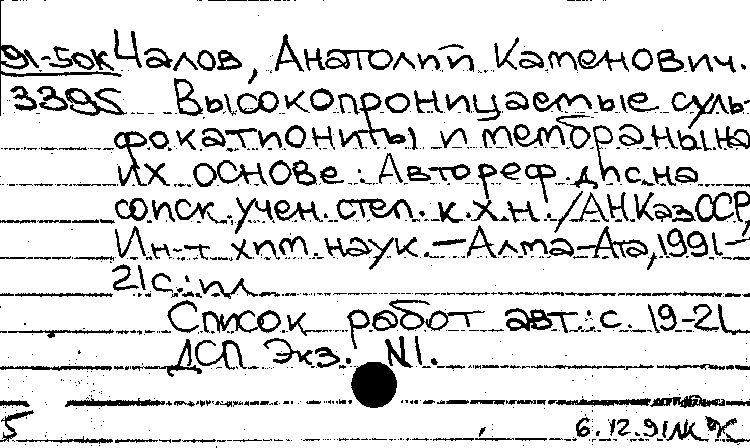 91-50к Чалов, Анатолий Каменович.
3395 Высокопроницаемые суль-
фокатиониты и мембраны на
их основе: Автореф. дис. на
соиск. учен. степ. к.х.н./АН КазССР,
Ин-т хим. наук.—Алма-Ата, 1991—
21с.: ил
Список работ авт.: с. 19-21
ДСП Экз. N1.
5 6.12.91